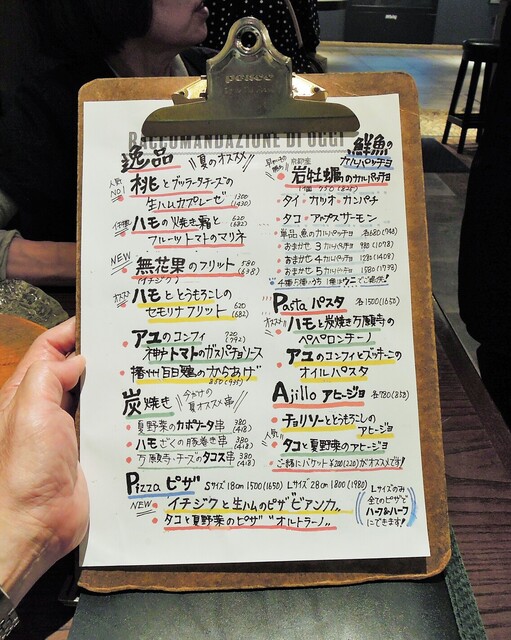 penco
RACCOMANDAZIONE DI OGGI
逸品 夏のオススメ
人気 NO.1 桃とブッラータチーズの
生ハムカプレーゼ 1300 (1430)
ハモの焼き霜と 620 (682)
フルーツトマトのマリネ
NEW 無花果のフリット 580 (638)
(イチジク)
オススメ ハモととうもろこしの
セモリナフリット 620 (682)
アユのコンフィ 720 (792)
神戸トマトのガスパチョソース
播州百日鶏のからあげ 850 (935)
炭焼き 今かけの 夏オススメ串
夏野菜のカポナータ串 380 (418)
ハモざくの豚巻き串 380 (418)
万願寺・チーズのタコス串 380 (418)
Pizza ピザ Sサイズ 18cm 1500 (1650) Lサイズ 28cm 1800 (1980)
NEW イチジクと生ハムのピザ "ビアンカ"
タコと夏野菜のピザ "オルトラーノ"
Lサイズのみ
全てのピザで
ハーフ&ハーフ
にできます!
鮮魚の
カルパッチョ
岩牡蠣のカルパッチョ
1個 750 (825)
・タイ ・カツオ ・カンパチ
・タコ ・アトランサーモン
単品 魚のカルパッチョ 各680 (748)
おまかせ 3カルパッチョ 980 (1078)
おまかせ 4カルパッチョ 1280 (1408)
おまかせ 5カルパッチョ 1580 (1738)
4種・5種のうち1種はウニでご提供!
Pasta パスタ 各1500 (1650)
オススメ ハモと炭焼き万願寺の
ペペロンチーノ
アユのコンフィとズッキーニの
オイルパスタ
Ajillo アヒージョ 各780 (858)
チョリソーととうもろこしの
アヒージョ
人気 タコと夏野菜のアヒージョ
ご一緒にバケット¥200 (220)がオススメです!